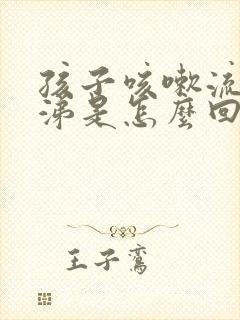 孩子咳嗽流
涕是怎麼回
王子鸞